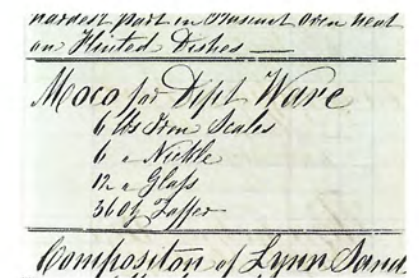 hardest part in Biscuit Oven heat
on Flinted Dishes —
Moco for Dipt Ware
6 lbs Iron Scales
6 " Nickle
12 " Glass
36 oz Zaffer
Composition of Lynn Sand